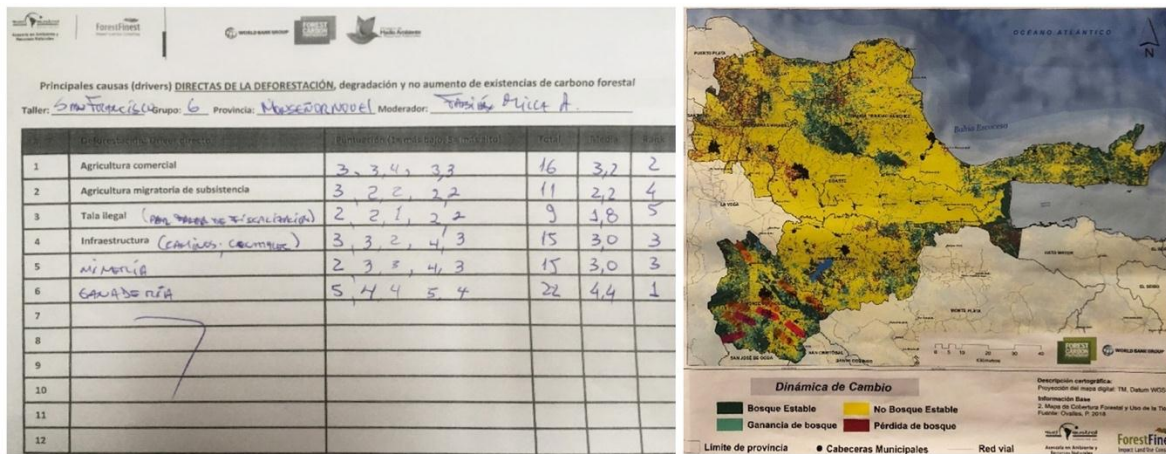 ForestFinest
WORLD BANK GROUP
FOREST CARBON
Medio Ambiente
Principales causas (drivers) DIRECTAS DE LA DEFORESTACIÓN, degradación y no aumento de existencias de carbono forestal
Taller: San Francisco Grupo: 6 Provincia: MONSEÑOR NOUEL Moderador: Fabián Milla A.
Total Media Rank
1 Agricultura comercial 3, 3, 4, 3, 3 16 3,2 2
2 Agricultura migratoria de subsistencia 3 2 2, 2, 2 11 2,2 4
3 Tala ilegal 2, 2 1, 2 2 9 1,8 5
4 Infraestructura 3, 3 2, 4, 3 15 3,0 3
5 MINERÍA 2 3, 3, 4, 3 15 3,0 3
6 GANADERÍA 5, 4 4 5, 4 22 4,4 1
7
8
9
10
11
12
OCÉANO ATLÁNTICO
N
PUERTO PLATA
DUARTE
LA VEGA
HATO MAYOR
EL SEIBO
MONTE PLATA
SAN JOSÉ DE OCOA
SAN CRISTÓBAL
0 5 10 20 30 40
FOREST CARBON
WORLD BANK GROUP
Dinámica de Cambio
Bosque Estable
No Bosque Estable
Ganancia de bosque
Pérdida de bosque
Límite de provincia
Cabeceras Municipales
Red vial
Descripción cartográfica:
Proyección del mapa digital: TM, Datum WGS
Información Base
2. Mapa de Cobertura Forestal y Uso de la
Fuente: Ovalles, P. 2018
ForestFine